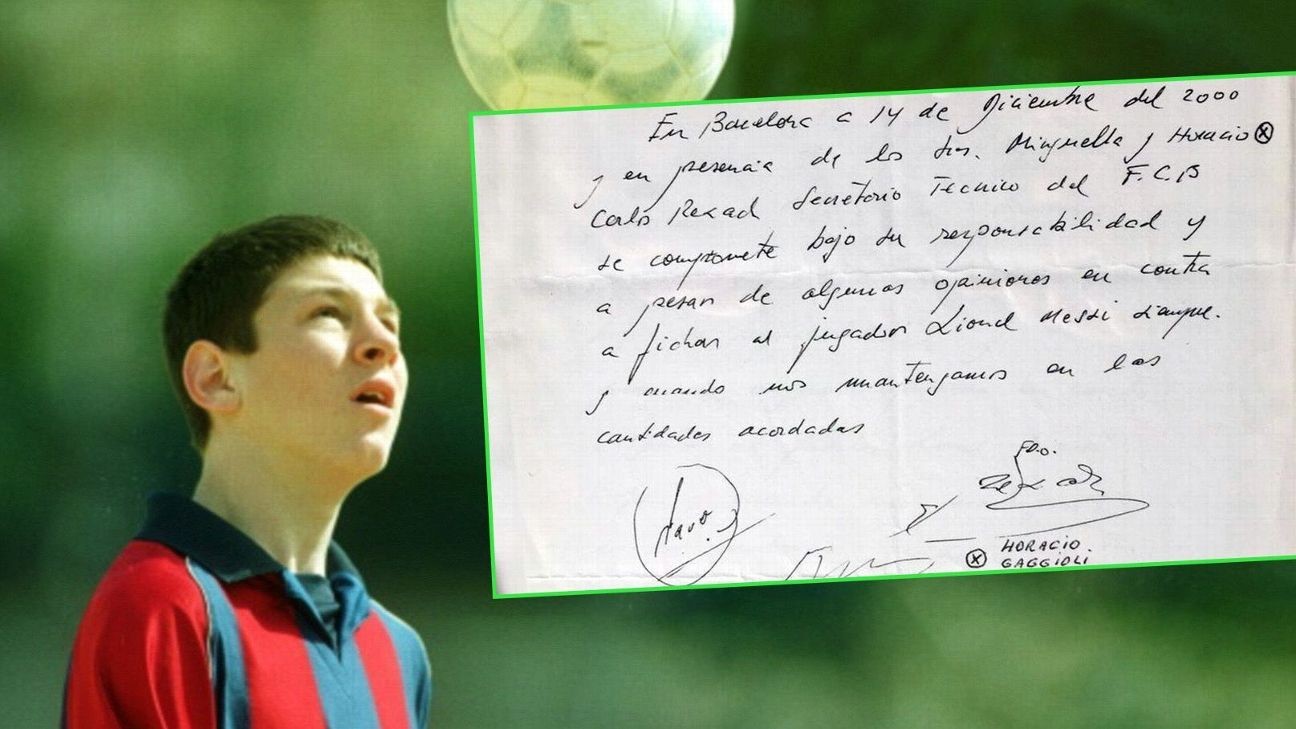 En Barcelona a 14 de Diciembre del 2000
y en presencia de los Sres. Minguella y Horacio ⓧ
Carlos Rexach Secretario Tecnico del F.C.B
se compromete bajo su responsabilidad y
a pesar de algunas opiniones en contra
a fichar al jugador Lionel Messi siempre.
y cuando nos mantengamos en las
cantidades acordadas
Fdo.
Rexach
ⓧ HORACIO
GAGGIOLI